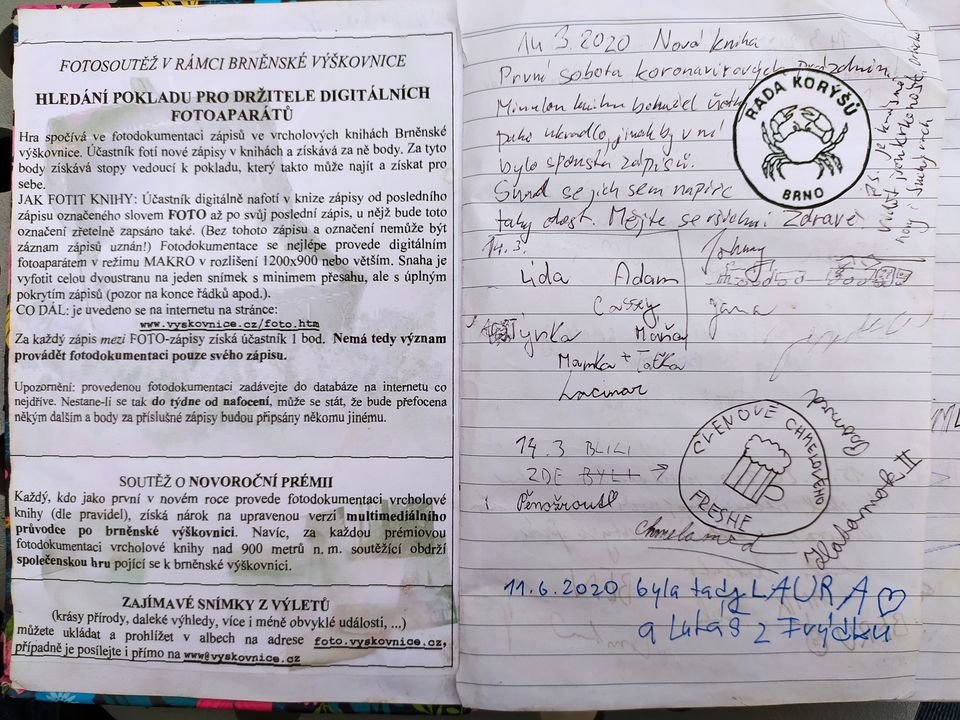 FOTOSOUTĚŽ V RÁMCI BRNĚNSKÉ VÝŠKOVNICE
HLEDÁNÍ POKLADU PRO DRŽITELE DIGITÁLNÍCH
FOTOAPARÁTŮ
Hra spočívá ve fotodokumentaci zápisů ve vrcholových knihách Brněnské
výškovnice. Účastník fotí nové zápisy v knihách a získává za ně body. Za tyto
body získává stopy vedoucí k pokladu, který takto může najít a získat pro
sebe.
JAK FOTIT KNIHY: Účastník digitálně nafotí v knize zápisy od posledního
zápisu označeného slovem FOTO až po svůj poslední zápis, u nějž bude toto
označení zřetelně zapsáno také. (Bez tohoto zápisu a označení nemůže být
záznam zápisů uznán!) Fotodokumentace se nejlépe provede digitálním
fotoaparátem v režimu MAKRO v rozlišení 1200x900 nebo větším. Snaha je
vyfotit celou dvoustranu na jeden snímek s minimem přesahu, ale s úplným
pokrytím zápisů (pozor na konce řádků apod.).
CO DÁL: je uvedeno se na internetu na stránce:
www.vyskovnice.cz/foto.htm
Za každý zápis mezi FOTO-zápisy získá účastník 1 bod. Nemá tedy význam
provádět fotodokumentaci pouze svého zápisu.
Upozornění: provedenou fotodokumentaci zadávejte do databáze na internetu co
nejdříve. Nestane-li se tak do týdne od nafocení, může se stát, že bude přefocena
někým dalším a body za příslušné zápisy budou připsány někomu jinému.
SOUTĚŽ O NOVOROČNÍ PRÉMII
Každý, kdo jako první v novém roce provede fotodokumentaci vrcholové
knihy (dle pravidel), získá nárok na upravenou verzi multimediálního
průvodce po brněnské výškovnici. Navíc, za každou prémiovou
fotodokumentaci vrcholové knihy nad 900 metrů n. m. soutěžící obdrží
společenskou hru pojící se k brněnské výškovnici.
ZAJÍMAVÉ SNÍMKY Z VÝLETŮ
(krásy přírody, daleké výhledy, více i méně obvyklé události, ...)
můžete ukládat a prohlížet v albech na adrese foto.vyskovnice.cz,
případně je posílejte i přímo na www@vyskovnice.cz
14 3.2020 Nová kniha
První sobota koronavirových prázdnin
Minulou knihu bohužel
ukradlo, jinak by v ní
bylo spousta zápisů.
Snad se jich sem napíše
taky dost. Mějte se všichni Zdravě.
RADA KORÝŠŮ
BRNO
14.3.
Johnny
Lída Adam
Cassey Jana
Týnka Máňa
Mamka + Taťka
Lacinar
14.3 BLILI
ZDE BYLI →
Pěnožrouti
ČLENOVÉ CHMELOVÉHO
FRESHE
chmelamed
11.6.2020 byla tady LAURA
a Lukáš z Frýdku